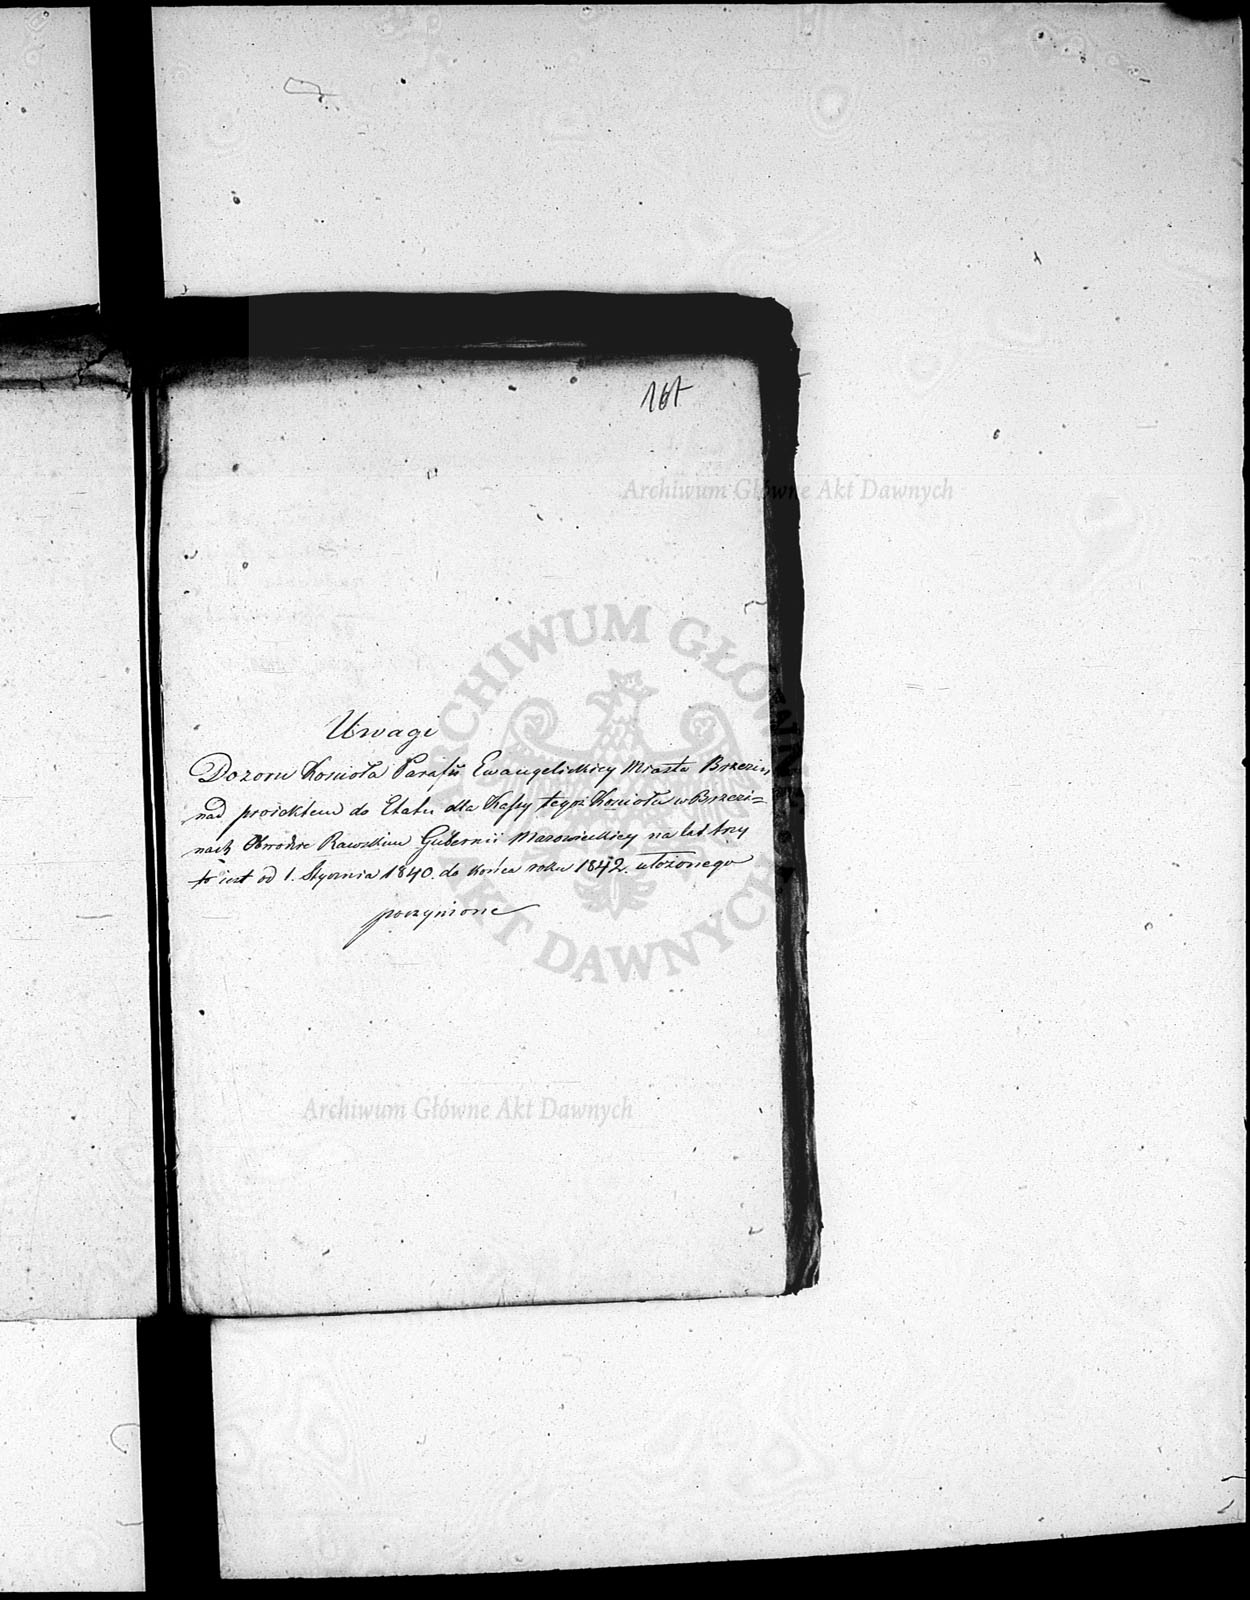 161
Archiwum Główne Akt Dawnych
ARCHIWUM GŁÓWNE
AKT DAWNYCH
Uwagi
Dozoru Kościoła Parafii Ewangelickiey Miasta Brzezin
nad proiektem do Etatu dla Kassy tegoż Kościoła w Brzezi=
nach Obwodzie Rawskim Gubernii Mazowieckiey na lat trzy
to iest od 1. Stycznia 1840. do końca roku 1842. ułożonego
poczynione
Archiwum Główne Akt Dawnych